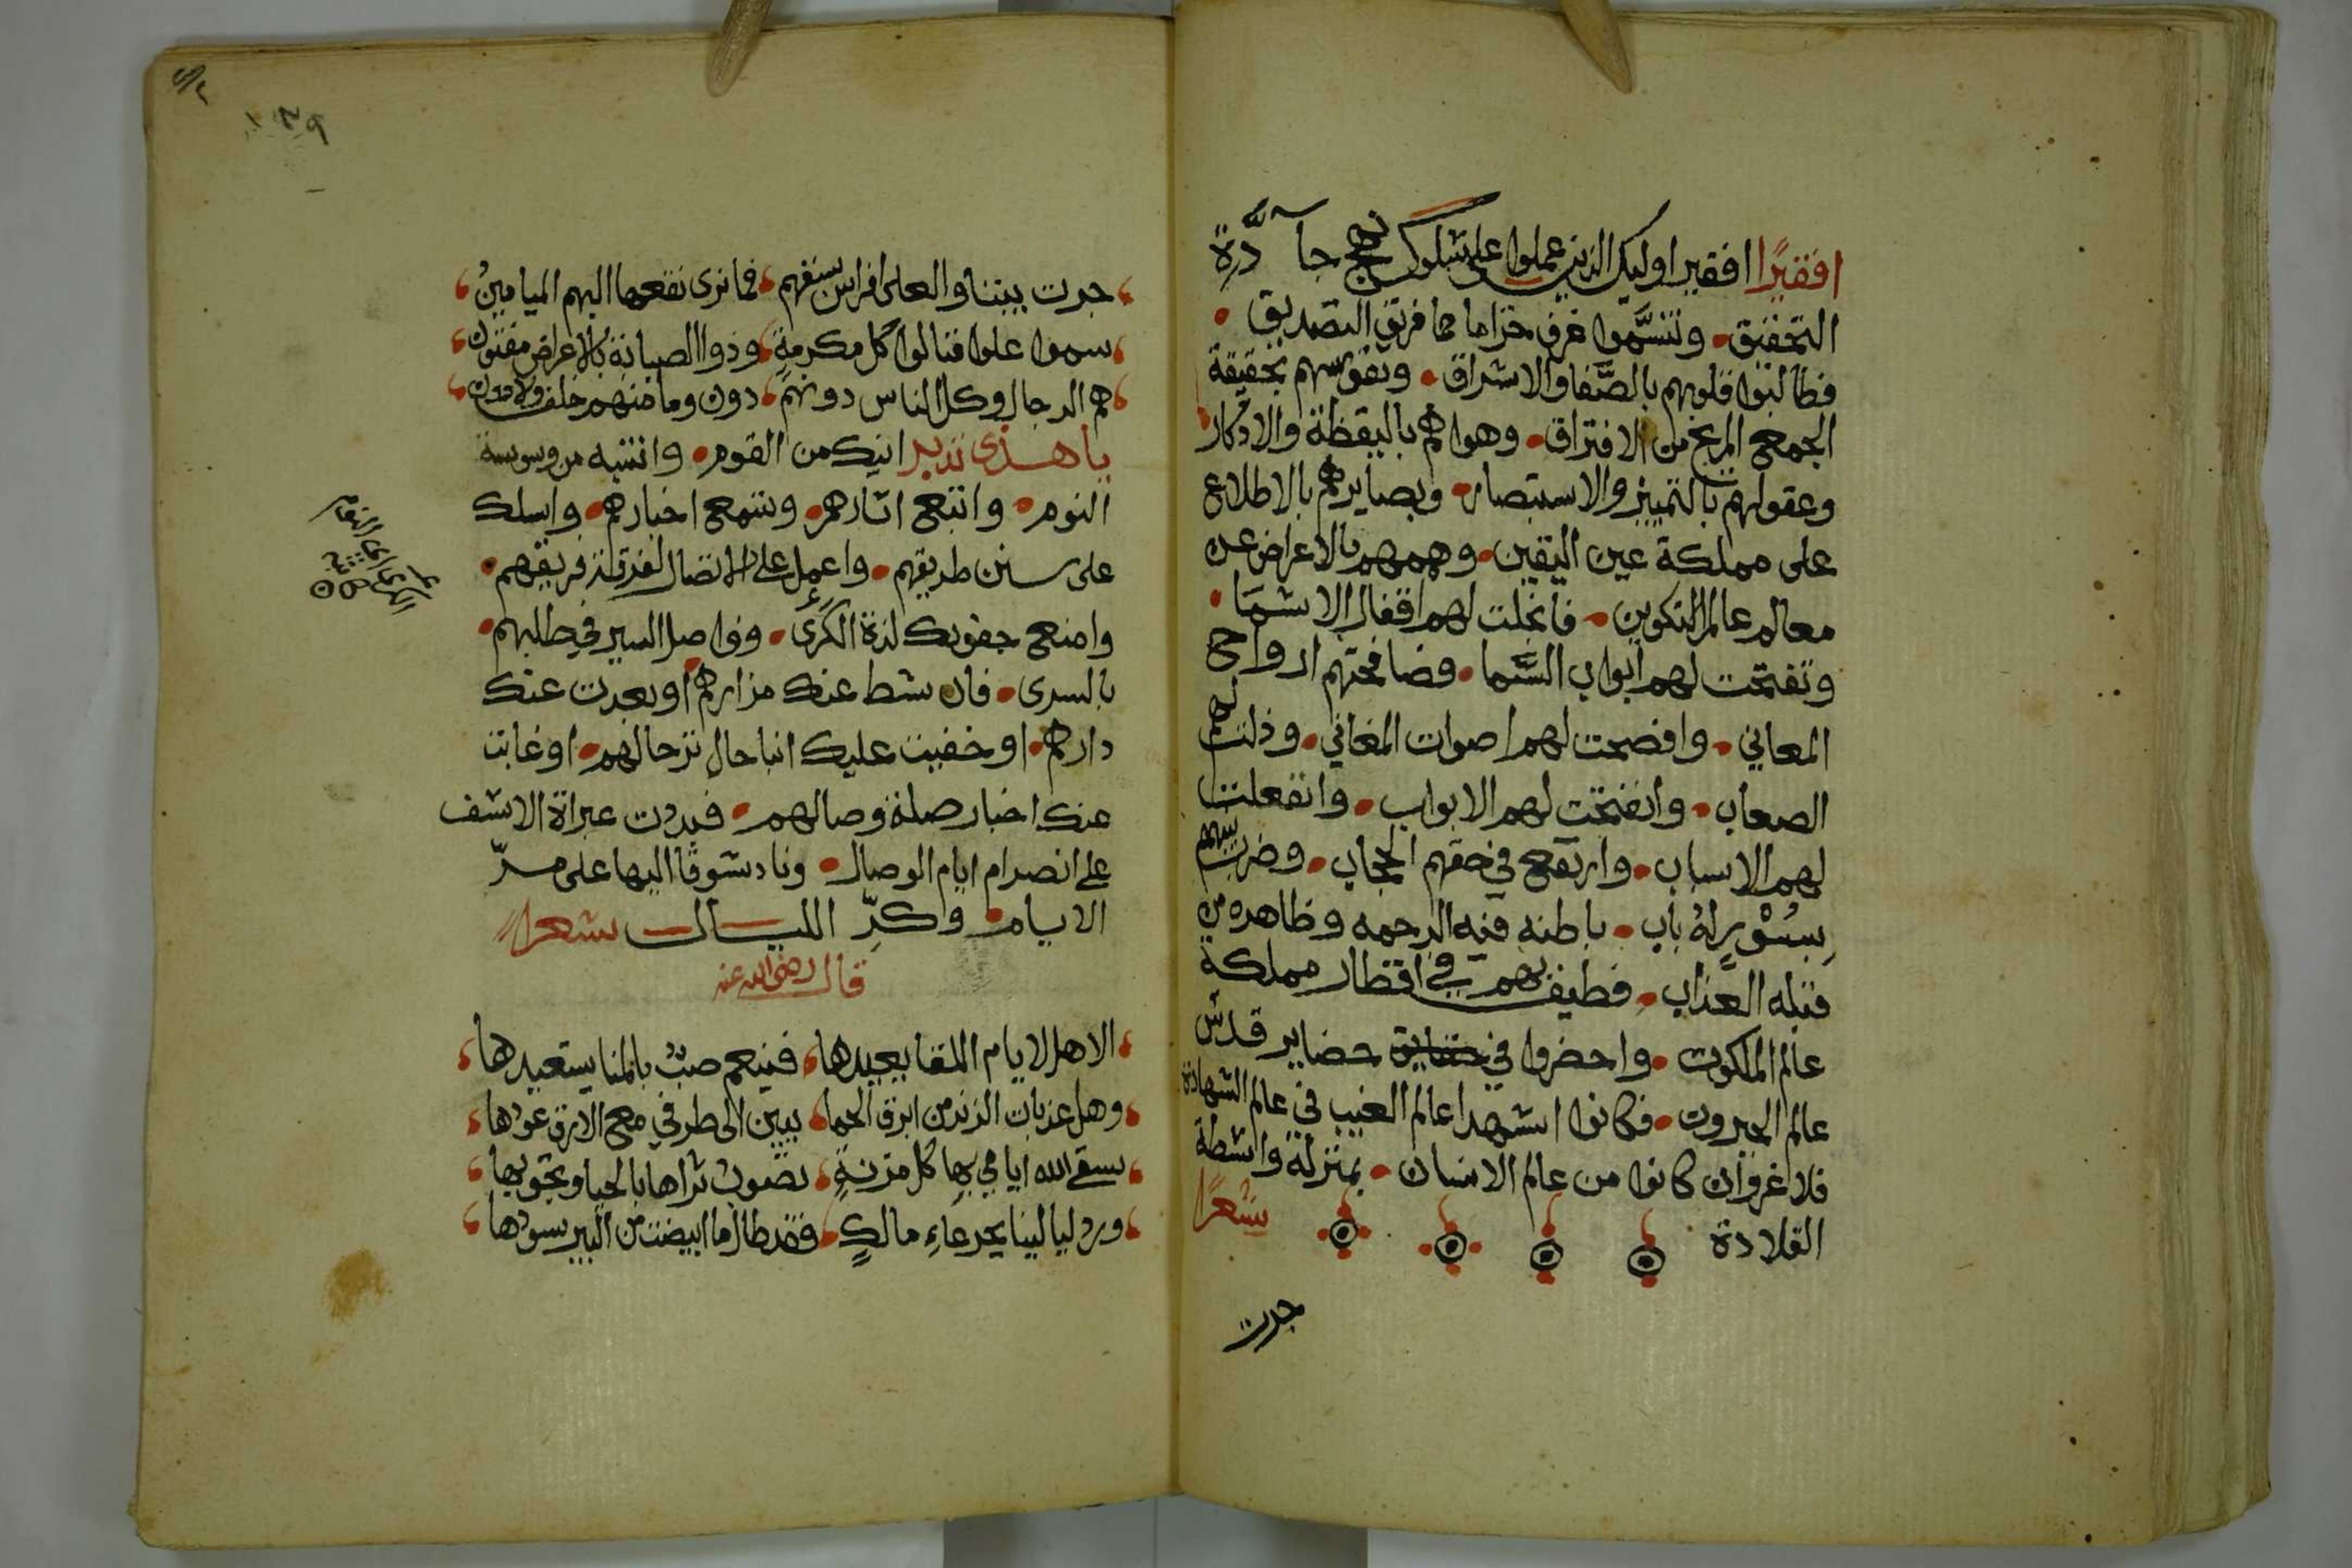 افقيرًا افقيرا اوليك الذين عملوا على سلوك نهج جادّة
التحقيق • وتنسَّموا عرف خزاما حما فريق التصديق •
فطالبوا قلوبهم بالصَّفا والاشراق • ونفوسهم بحقيقة
الجمع المريح من الافتراق • وهوا هم باليقظة والادكار
وعقولهم بالتمييز والاستبصار • وبصايرهم بالاطلاع
على مملكة عين اليقين • وهممهم بالاعراض عن
معالم عالم التكوين • فانجلت لهم اقفال الاسما •
وتفتحت لهم ابواب السَّما • وصافحتهم ارواح
المعاني • وافصحت لهم اصوات المغاني • وذلت لهم
الصعاب • وانفتحت لهم الابواب • وانفعلت
لهم الاسباب • وارتفع في حقهم الحجاب • وضرب بينهم
بِسُوْرٍ لهُ باب • باطنه فيه الرحمه وظاهره من
قبله العذاب • فطيف بهم في اقطار مملكة
عالم الملكوت • واحضروا في حضاير قدس
عالم الجبروت • فكانوا اشهدا عالم الغيب في عالم الشهادة
فلا غروان كانوا من عالم الانسان • بمنزلة واسطة
القلادة شعرًا
جرت
جرت بيننا والعلى افراس سبقهم فما نرى نقعها اليهم الميامينُ
سموا علوا فنالوا كل مكرمةٍ وذوا الصبانة بالاعراض مفتون
هم الرجال وكل الناس دونهم دون وما منهم خلف ولا دون
يا هذى تدبر اينك من القوم • وانتبه من وسوسة
النوم • واتبع اثارهم • وتتبع اخبارهم • واسلك
على سنن طريقهم • واعمل على الاتصال لفرقة فريقهم •
وامنع جفونك لذة الكرَى • وواصل السير في طلبهم •
بالسرى • فان شط عنك مزارهم • او بعدت عنك
دارهم • او خفيت عليك انبا حال ترحالهم • او غابت
عنك اخبار صلة وصالهم • فبددت عبراة الاسف
على انصرام ايام الوصال • وناد شوقًا اليها على مرّ
الايام • وكرِّ الليال شعرا
قال رضى الله عنه
الا هل لايام اللقا يعيدها فينعم صبٌ بالمنا يستعيدها
وهل عذبات الرند من ابرق الحما يبين الى طرفي مع الارق عودها
سقى الله ايامي بها كل مزنةٍ تصوب ثراها بالحيا وتجودها
ورد ليالينا بجرعاءِ مالكٍ فقد طال ما ابيضت من البير سودها